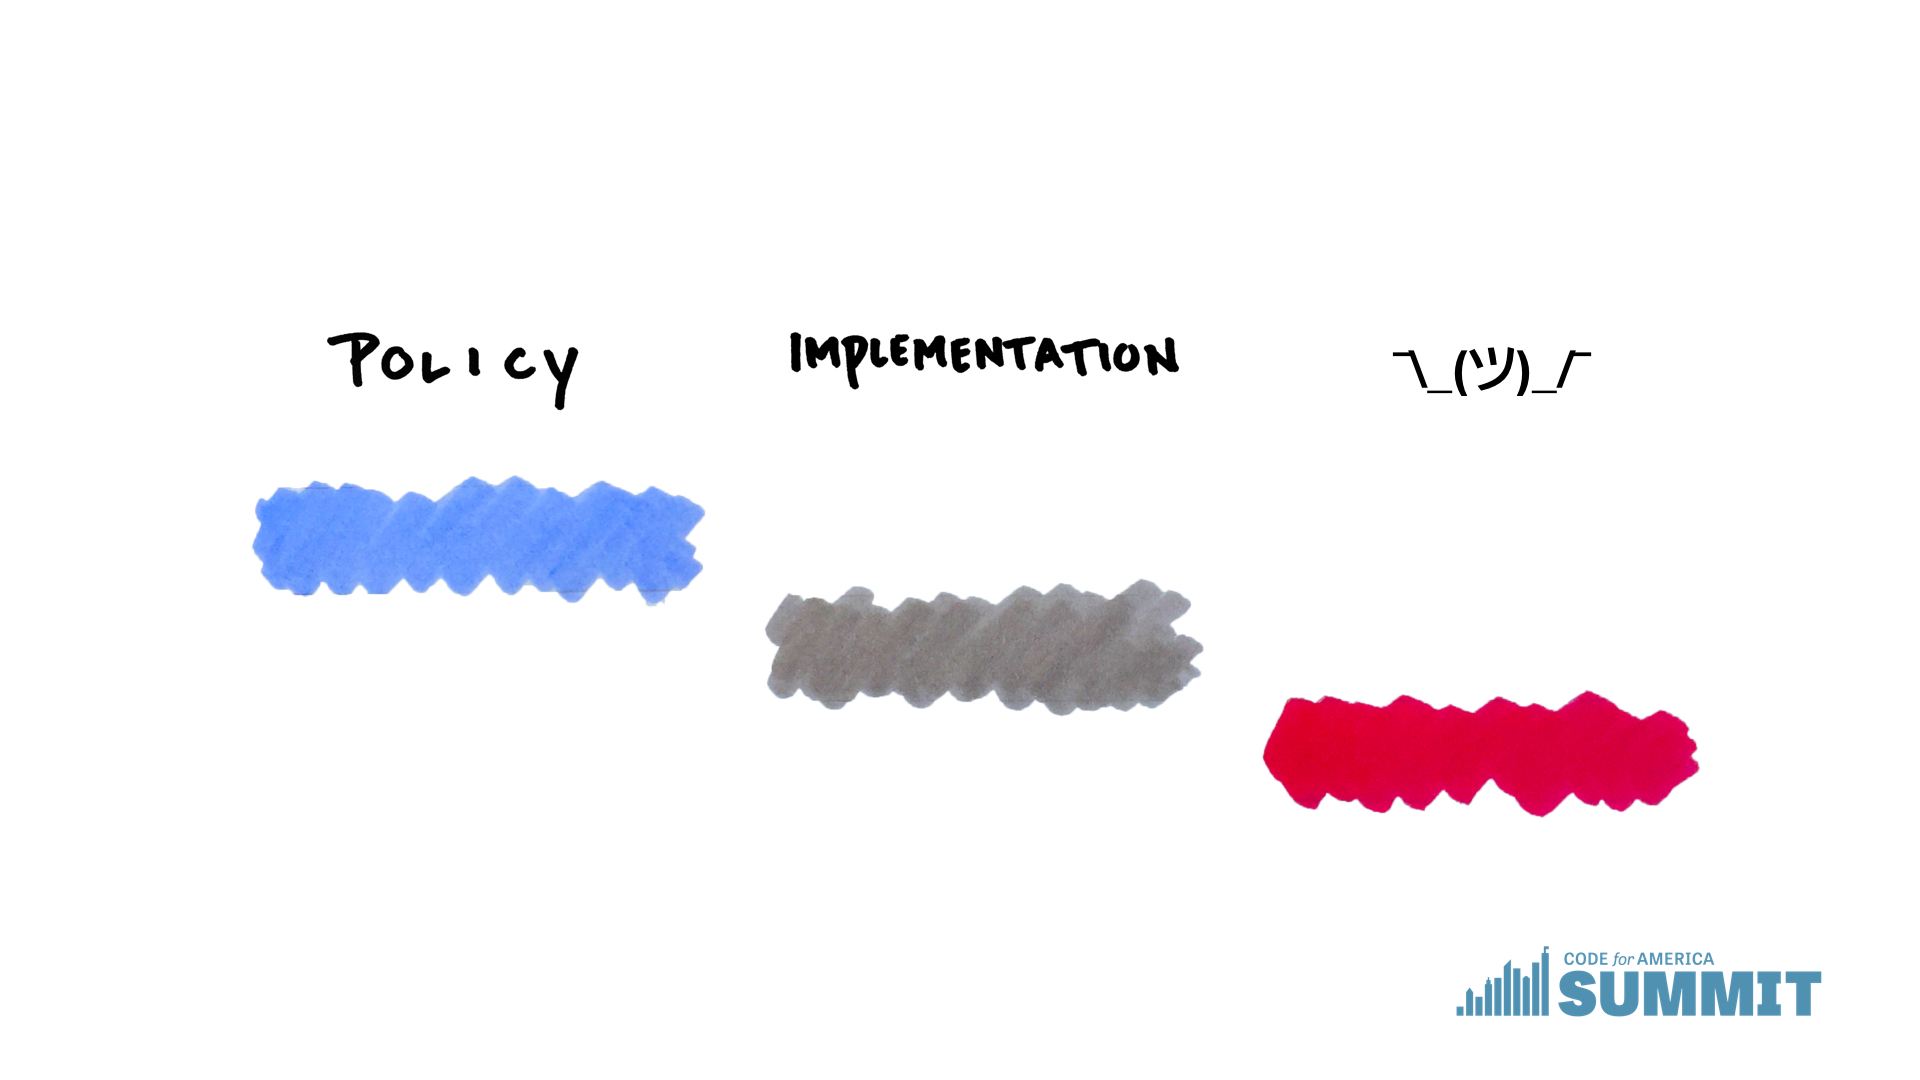 POLICY
IMPLEMENTATION
¯\_(ツ)_/¯
CODE for AMERICA
SUMMIT